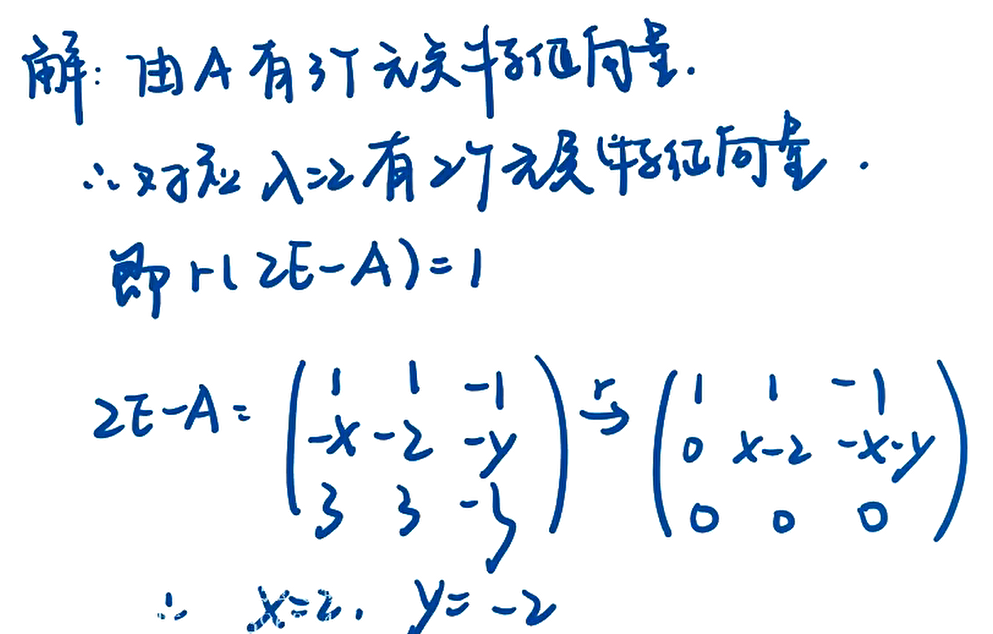 解: 由A有3个无关特征向量.
∴对应 λ=2有2个无关特征向量.
即 r(2E-A)=1
2E-A= ( 1 1 -1 ; -x -2 -y ; 3 3 -3 ) r→ ( 1 1 -1 ; 0 x-2 -x-y ; 0 0 0 )
∴ x=2. y=-2